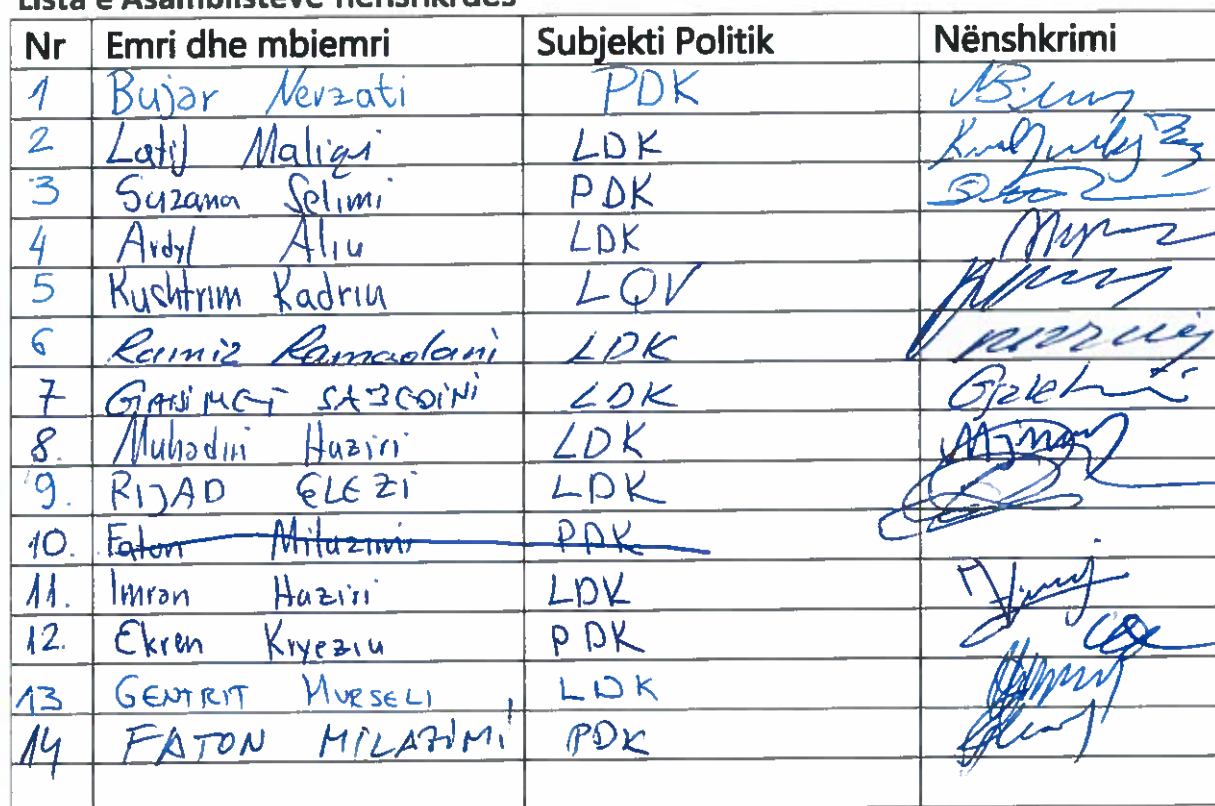 Lista e Asamblistëve nënshkrues
Nr Emri dhe mbiemri Subjekti Politik Nënshkrimi
1 Bujar Nevzati PDK
2 Latif Maliqi LDK
3 Suzana Selimi PDK
4 Ardyl Aliu LDK
5 Kushtrim Kadriu LQV
6 Ramiz Ramadani LDK
7 LDK
8. Muhadin Haziri LDK
9. RIJAD ELEZI LDK
10. Faton Milazimi PDK
11. Imran Haziri LDK
12. Ekrem Kryeziu PDK
13 GENTRIT MURSELI LDK
14 FATON MILAZIMI PDK